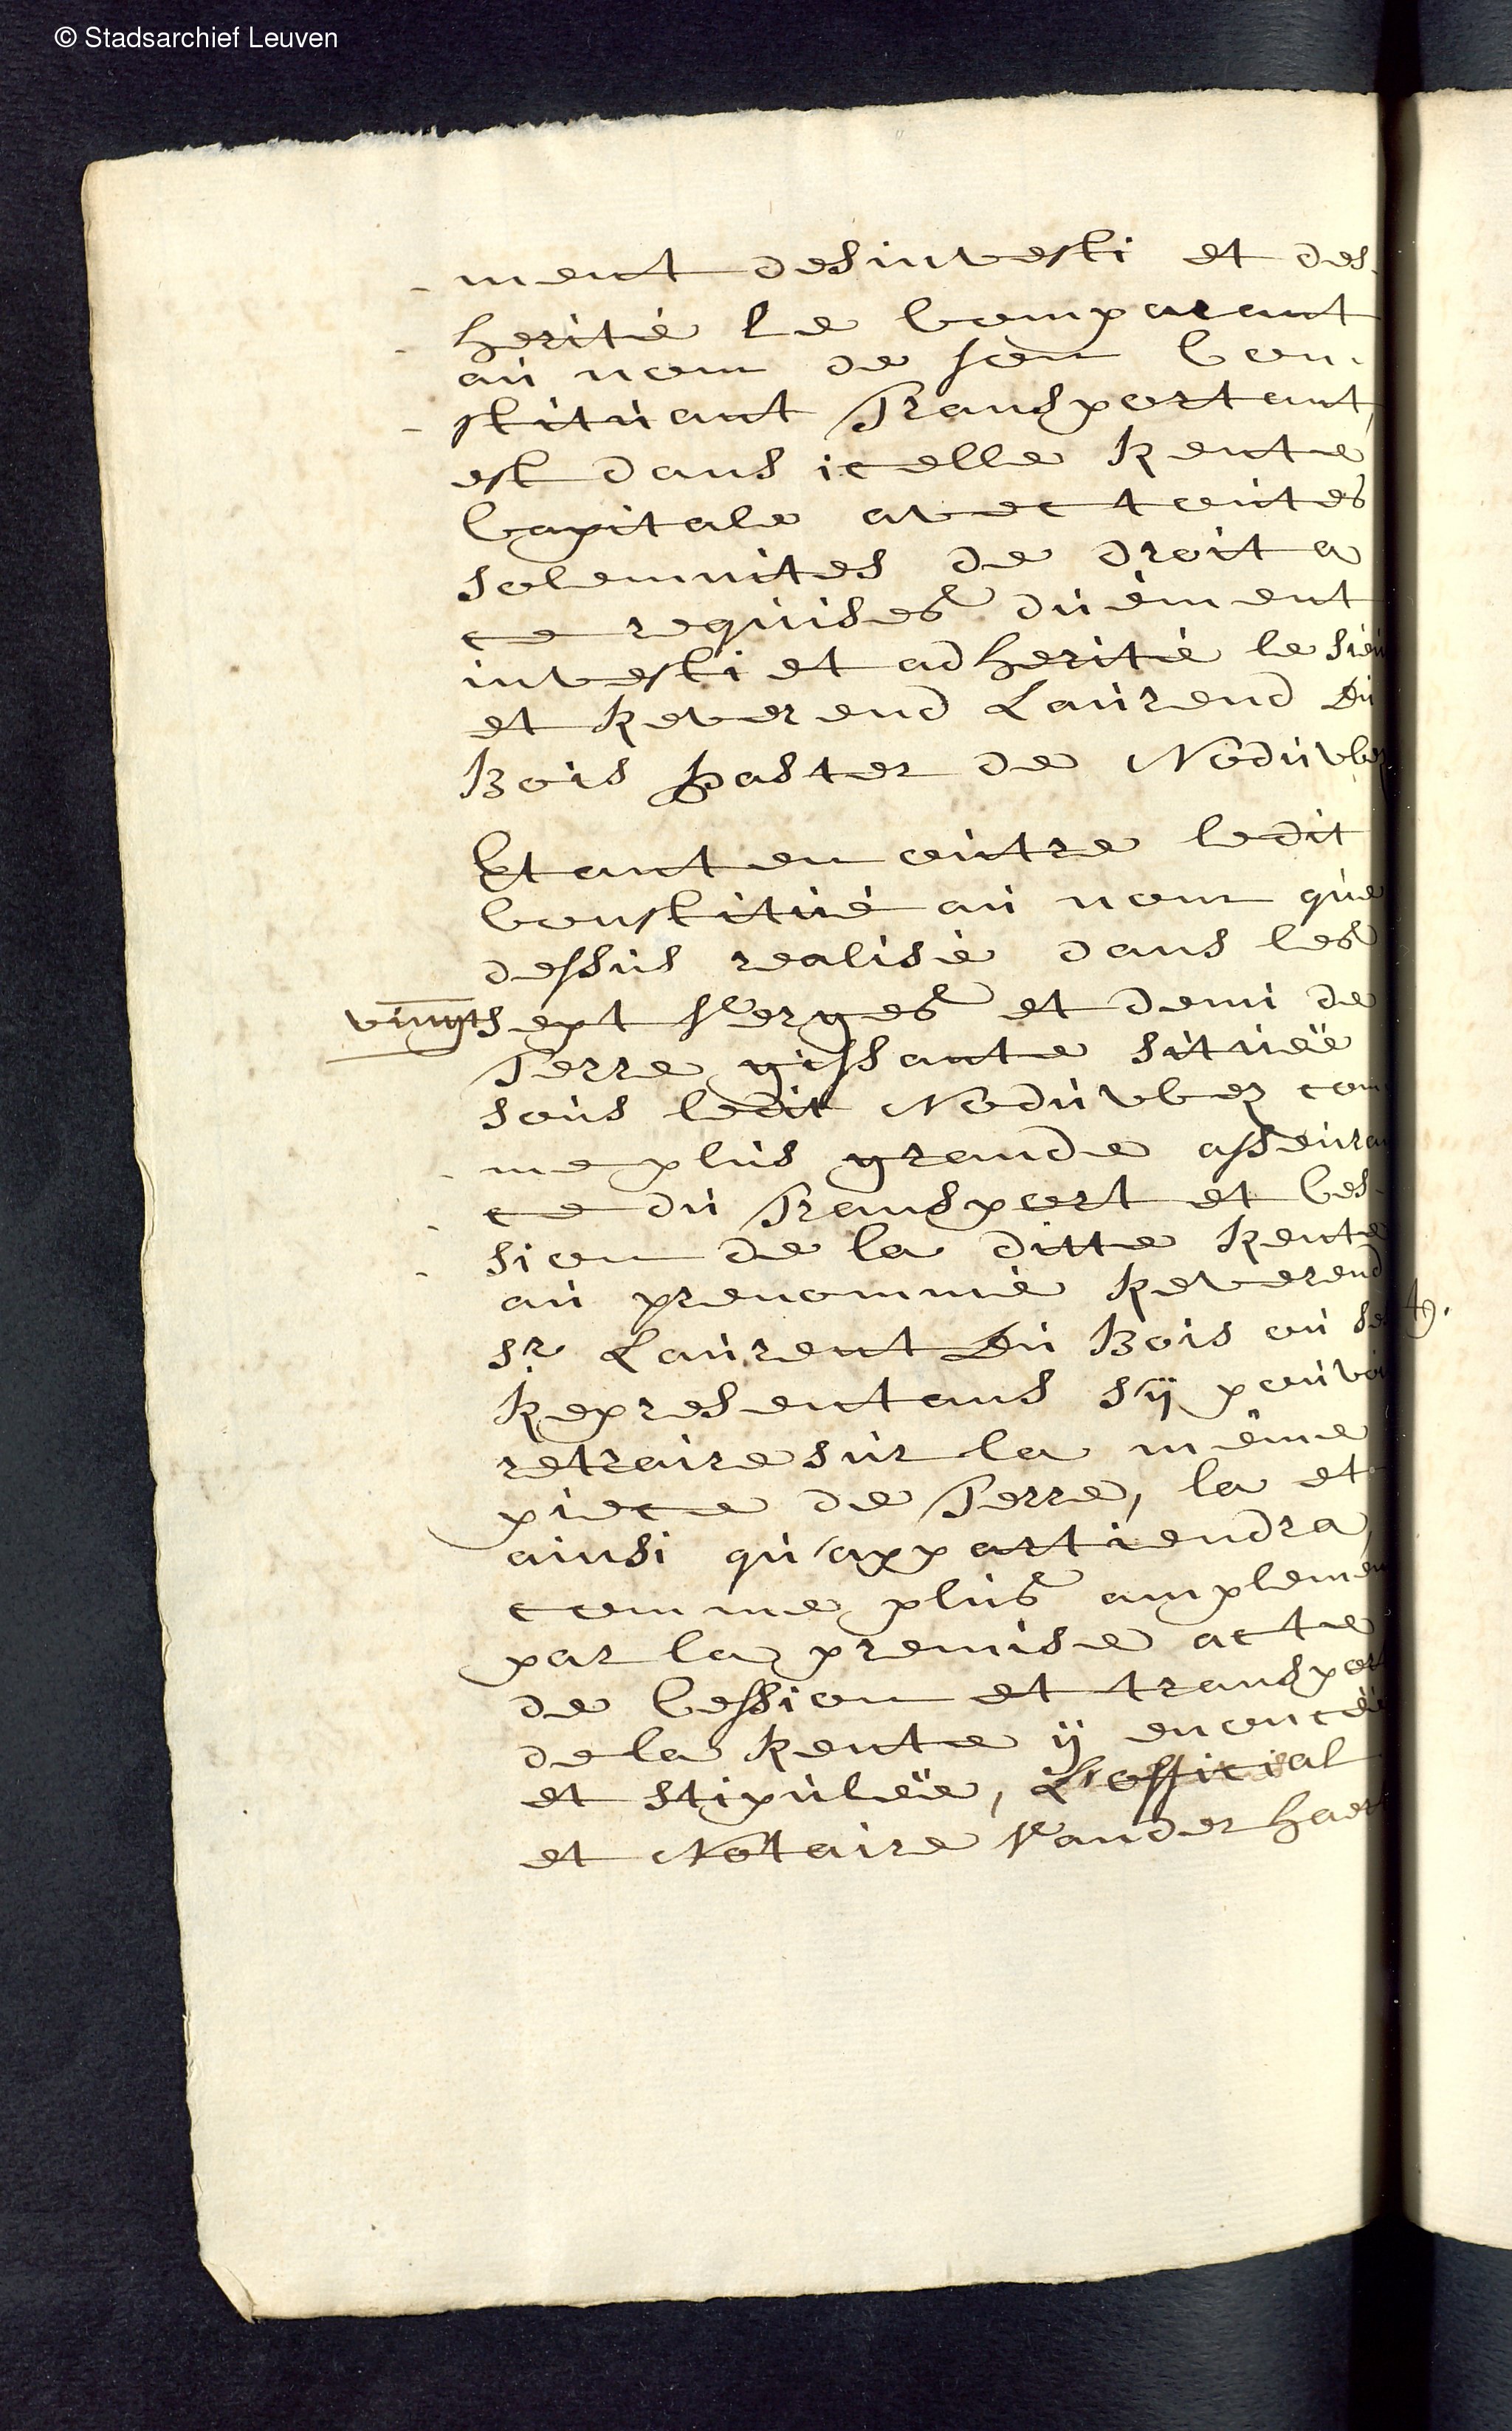 © Stadsarchief Leuven
ment desinvesti et des-
herité le Comparant
au nom de son Con-
stituant Transportant,
est dans icelle Rente
Capitale avec toutes
solemnites de droit a
ce requises duëment
investi et adherité le Sieu
et Reverend Laurend Du
Bois Paster de Noduvbez
Etant en outre ledit
Constitué au nom que
dessus realisé dans les
vingt sept Verges et demi de
Terre gissante situëe
sous ledit Noduvbez com
me plus grande asseuran
ce du Transport et Ces-
sion de la ditte Rente
au prenommé Reverend
Sr Laurent Du Bois ou ses
Representans s'ÿ pouvoi
retraire sur la même
piece de Terre, la et
ainsi qu'appartiendra,
comme plus amplemen
par la premise acte
de Cession et transport
de la Rente ÿ enoncëe
et stipulëe, L'official
et Notaire Vander Haert